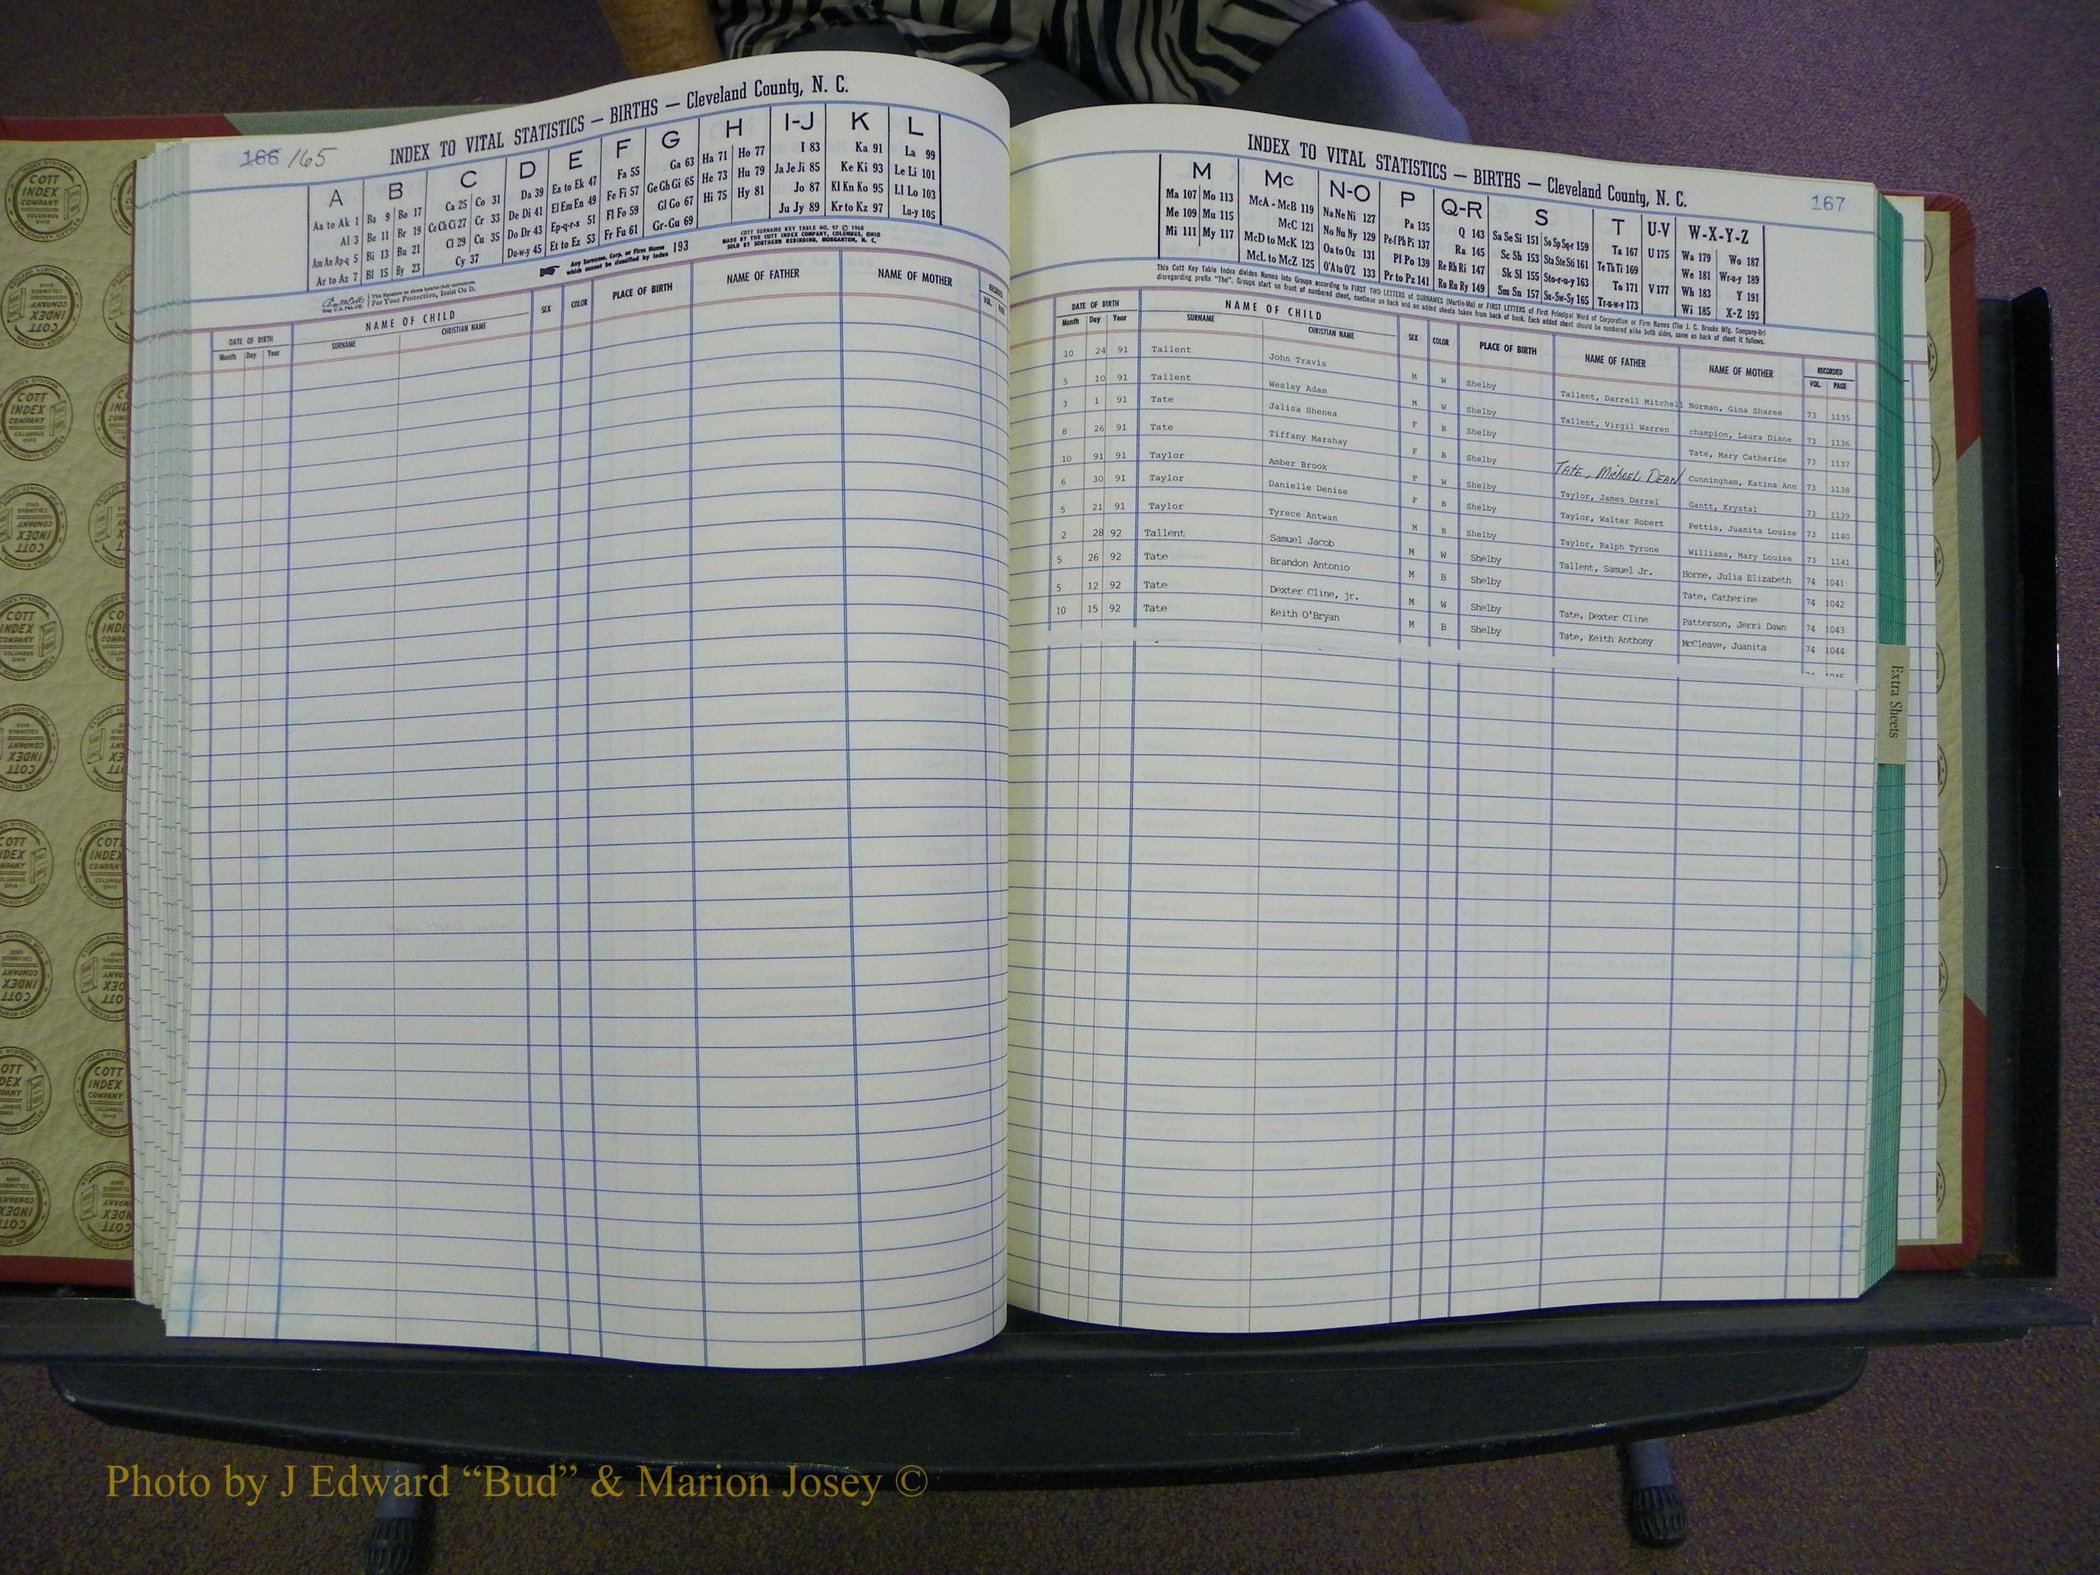 166 165
INDEX TO VITAL STATISTICS — BIRTHS — Cleveland County, N. C.
A B C D E F G H I-J K L
Aa to Ak 1 Ba 9 Bo 17 Ca 25 Co 31 Da 39 Ea to Ek 47 Fa 55 Ga 63 Ha 71 Ho 77 I 83 Ka 91 La 99
Al 3 Be 11 Br 19 Ce Ch Ci 27 Cr 33 De Di 41 El Em En 49 Fe Fi 57 Ge Gh Gi 65 He 73 Hu 79 Ja Je Ji 85 Ke Ki 93 Le Li 101
Am An Ap-q 5 Bi 13 Bu 21 Cl 29 Cu 35 Do Dr 43 Ep-q-r-s 51 Fl Fo 59 Gl Go 67 Hi 75 Hy 81 Jo 87 Kl Kn Ko 95 Ll Lo 103
Ar to Az 7 Bl 15 By 23 Cy 37 Du-w-y 45 Et to Ez 53 Fr Fu 61 Gr-Gu 69 Ju Jy 89 Kr to Kz 97 Lu-y 105
Any Surname, Corp. or Firm Name which cannot be classified by Index 193
COTT SURNAME KEY TABLE NO. 97 © 1960
MADE BY THE COTT INDEX COMPANY, COLUMBUS, OHIO
SOLD BY SOUTHERN REBINDING, MORGANTON, N. C.
For Your Protection, Insist On It.
DATE OF BIRTH NAME OF CHILD SEX COLOR PLACE OF BIRTH NAME OF FATHER NAME OF MOTHER RECORDED
Month Day Year SURNAME CHRISTIAN NAME VOL.
INDEX TO VITAL STATISTICS — BIRTHS — Cleveland County, N. C.
167
M Mc N-O P Q-R S T U-V W-X-Y-Z
Ma 107 Mo 113 McA - McB 119 Na Ne Ni 127 Pa 135 Q 143 Sa Se Si 151 So Sp Sq-r 159 Ta 167 U 175 Wa 179 Wo 187
Me 109 Mu 115 McC 121 No Nu Ny 129 Pe-f Ph Pi 137 Ra 145 Sc Sh 153 Sta Ste Sti 161 Te Th Ti 169 We 181 Wr-u-y 189
Mi 111 My 117 McD to McK 123 Oa to Oz 131 Pl Po 139 Re Rh Ri 147 Sk Sl 155 Sto-r-u-y 163 To 171 V 177 Wh 183 Y 191
McL to McZ 125 O'A to O'Z 133 Pr to Pz 141 Ro Ru Ry 149 Sm Sn 157 Su-Sw-Sy 165 Tr-u-w-y 173 Wi 185 X-Z 193
This Cott Key Table Index divides Names into Groups according to FIRST TWO LETTERS of SURNAMES (Martin-Ma) or FIRST LETTERS of First Principal Word of Corporation or Firm Names (The J. C. Brooks Mfg. Company-Br)
disregarding prefix "The". Groups start on front of numbered sheet, continue on back and on added sheets taken from back of book. Each added sheet should be numbered alike both sides, same as back of sheet it follows.
DATE OF BIRTH NAME OF CHILD SEX COLOR PLACE OF BIRTH NAME OF FATHER NAME OF MOTHER RECORDED
Month Day Year SURNAME CHRISTIAN NAME VOL. PAGE
10 24 91 Tallent John Travis M W Shelby Tallent, Darrell Mitchell Norman, Gina Sharee 73 1135
5 10 91 Tallent Wesley Adam M W Shelby Tallent, Virgil Warren champion, Laura Diane 73 1136
3 1 91 Tate Jalisa Shenea F B Shelby Tate, Mary Catherine 73 1137
8 26 91 Tate Tiffany Marshay F B Shelby TATE, MICHAEL DEAN Cunningham, Katina Ann 73 1138
10 91 91 Taylor Amber Brook F W Shelby Taylor, James Darrel Gantt, Krystal 73 1139
6 30 91 Taylor Danielle Denise F B Shelby Taylor, Walter Robert Pettis, Juanita Louise 73 1140
5 21 91 Taylor Tyrece Antwan M B Shelby Taylor, Ralph Tyrone Williams, Mary Louise 73 1141
2 28 92 Tallent Samuel Jacob M W Shelby Tallent, Samuel Jr. Horne, Julia Elizabeth 74 1041
5 26 92 Tate Brandon Antonio M B Shelby Tate, Catherine 74 1042
5 12 92 Tate Dexter Cline, jr. M W Shelby Tate, Dexter Cline Patterson, Jerri Dawn 74 1043
10 15 92 Tate Keith O'Bryan M B Shelby Tate, Keith Anthony McCleave, Juanita 74 1044
Extra Sheets
COTT INDEX COMPANY COLUMBUS OHIO
Photo by J Edward “Bud” & Marion Josey ©